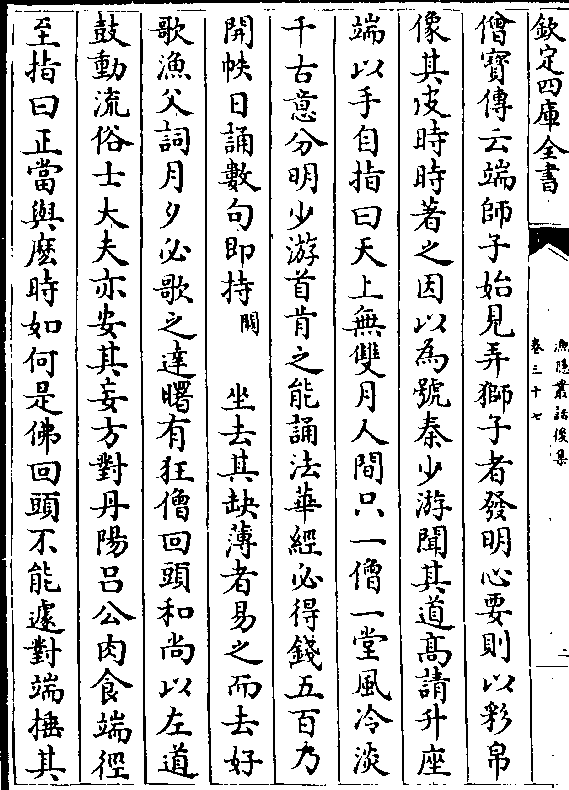 欽定四庫全書
漁隱叢話後集
卷三十七
二
僧寳傳云端師子始見弄獅子者發明心要則以彩帛
像其皮時時著之因以為號秦少游聞其道髙請升座
端以手自指曰天上無雙月人間只一僧一堂風冷淡
千古意分明少游首肯之能誦法華經必得錢五百乃
開帙日誦數句即持闕坐去其缺薄者易之而去好
歌漁父詞月夕必歌之達曙有狂僧回頭和尚以左道
鼓動流俗士大夫亦安其妄方對丹陽吕公肉食端徑
至指曰正當與麽時如何是佛回頭不能遽對端捶其